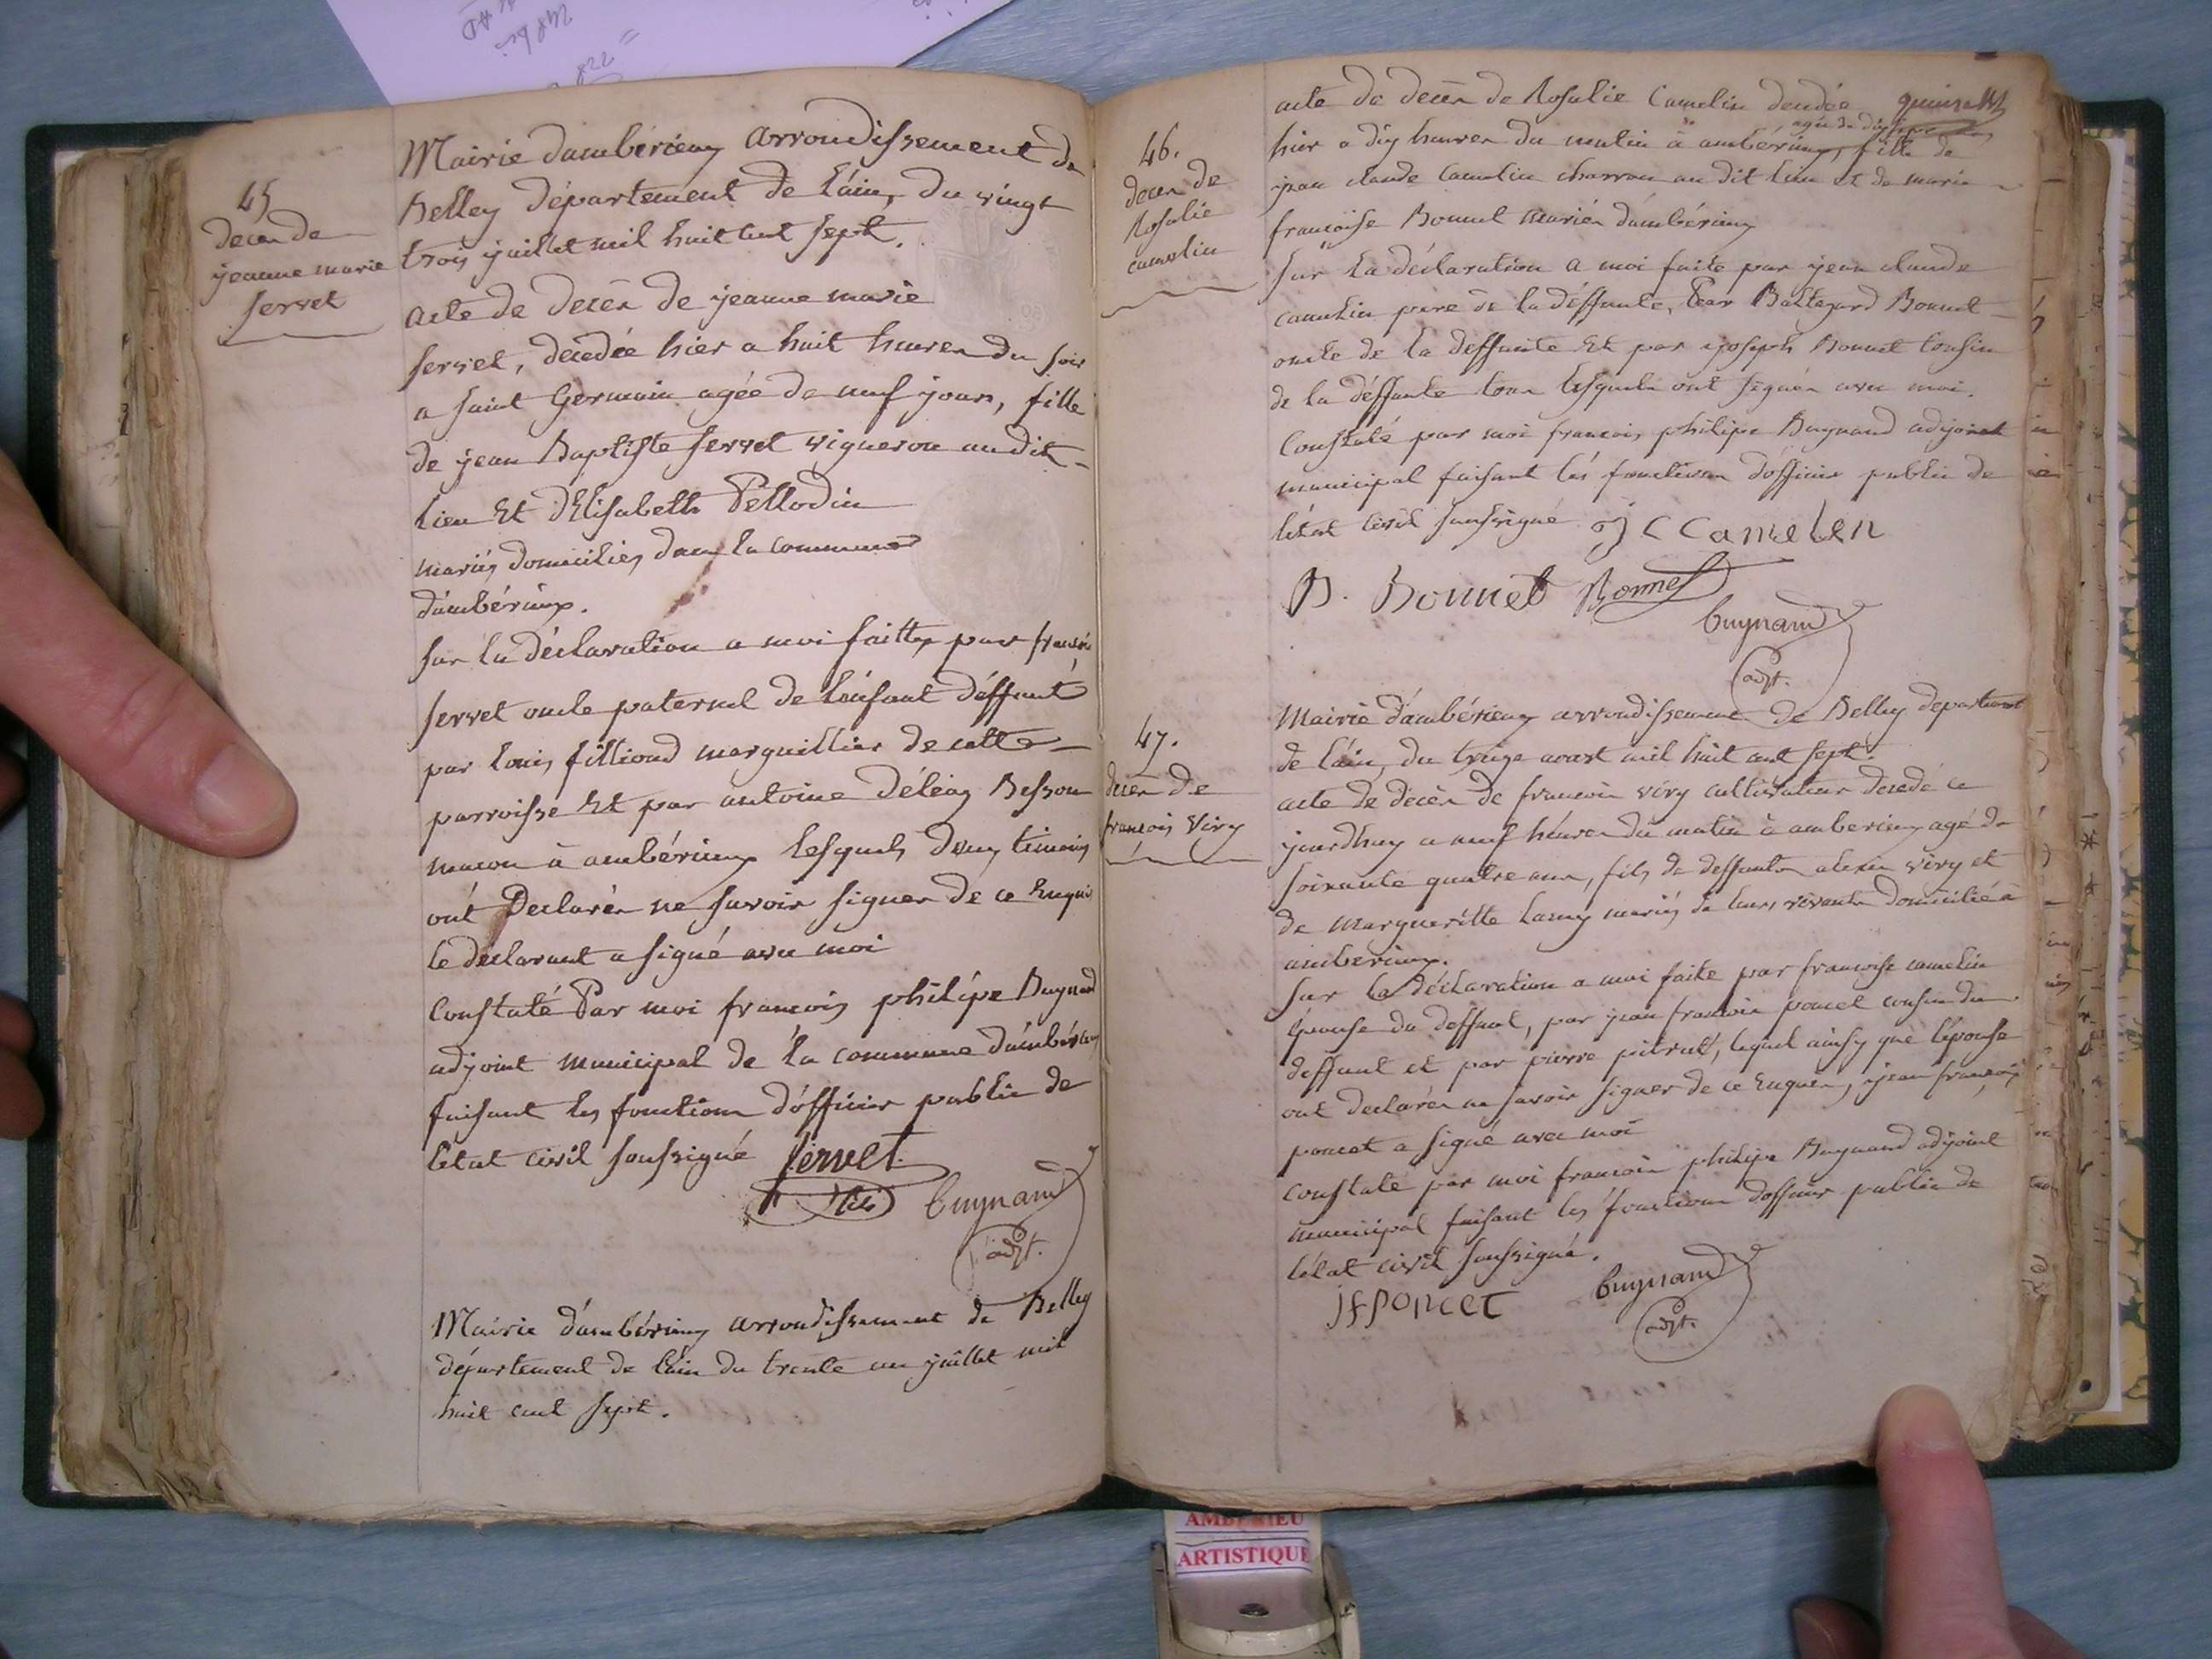 45
deces de
jeanne marie
servet
Mairie dambérieux arrondissement de
Belley département de l'ain, du vingt
trois juillet mil huit cent sept.
acte de deces de jeanne marie
servet, décédée hier a huit heures du soir
a saint Germain agée de neuf jours, fille
de jean Baptiste servet vigneron au dit
lieu Et d'Elisabeth Pellodin
mariés domiciliés dans la commune
d'ambérieux.
sur la déclaration a moi faitte par francois
servet oncle paternel de l'enfant déffunt
par louis filliond marguillier de cette
parroisse Et par antoine déléaz Besson
macon à ambérieux lesquels deux temoins
ont Declarés ne savoir signer de ce Enquis
le déclarant a signé avec moi
Constaté Par moi francois philipe Bugnand
adjoint municipal de la commune d'ambérieux
faisant les fonctions d'officier public de
l'etat civil soussigné servet
bugnand
adjt.
Mairie d'ambérieux arrondissement de Belley
département de l'ain du trente un juillet mil
huit cent sept.
46.
deces de
Rosalie
camelin
acte de deces de Rosalie Camelin decedée
agée de
hier a dix heures du matin à ambérieux, fille de
jean claude camelin charron au dit lieu et de marie
francoise Bonnet mariés d'ambérieux
sur la déclaration a moi faite par jean claude
camelin pere de la déffunte, Par Baltazard Bonnet
oncle de la deffunte Et par joseph Bonnet Cousin
de la déffunte tous lesquels ont signés avec moi.
Constaté par moi francois philipe Bugnand adjoint
municipal faisant les fonctions d'officier public de
l'etat civil soussigné j C Camelen
B. Bonnet Bonnet
bugnand
adjt.
47.
deces de
francois Viry
Mairie d'ambérieux arrondissement de Belley departement
de l'ain, du treize aoust mil huit cent sept.
acte de décès de francois viry cultivateur décédé ce
jourdhuy a neuf héures du matin à amberieux agé de
soixante quatre ans, fils de deffunts alexis viry et
de margueritte lamy mariés de leurs vivants domicilié à
amberieux.
sur la déclaration a moi faite par francoise camelin
épouse du deffunt, par jean francois poncet cousin du
deffunt et par pierre pitrat, lequel ainsy que l'épouse
ont declarés ne savoir signer de ce Enquis, jean francois
poncet a signé avec moi
constaté par moi francois philipe Bugnand adjoint
municipal faisant les fonctions d'officier public de
l'état civil soussigné.
jfponcet bugnand
adjt.
AMBERIEU
ARTISTIQUE